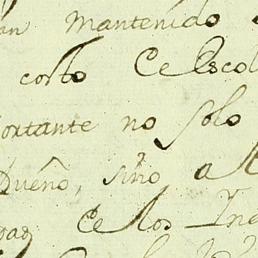 an mantenido
corto Ce Escol
ortante no solo
Dueño, sino a
Ce los Ind